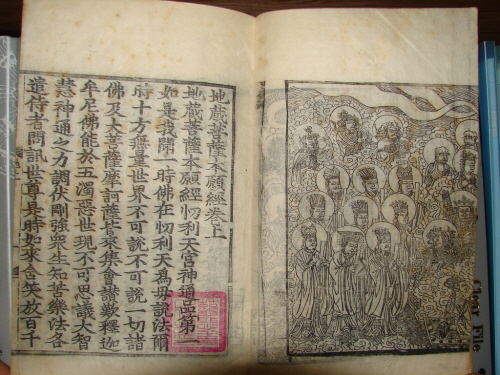 地藏菩薩本願經卷上
地藏菩薩本願經忉利天宮神通品第一
如是我聞一時佛在忉利天爲母說法爾
時十方無量世界不可說不可說一切諸
佛及大菩薩摩訶薩皆來集會讚歎釋迦
牟尼佛能於五濁惡世現不可思議大智
慧神通之力調伏剛強衆生知苦樂法各
遣侍者問訊世尊是時如來含笑放百千
Clear File